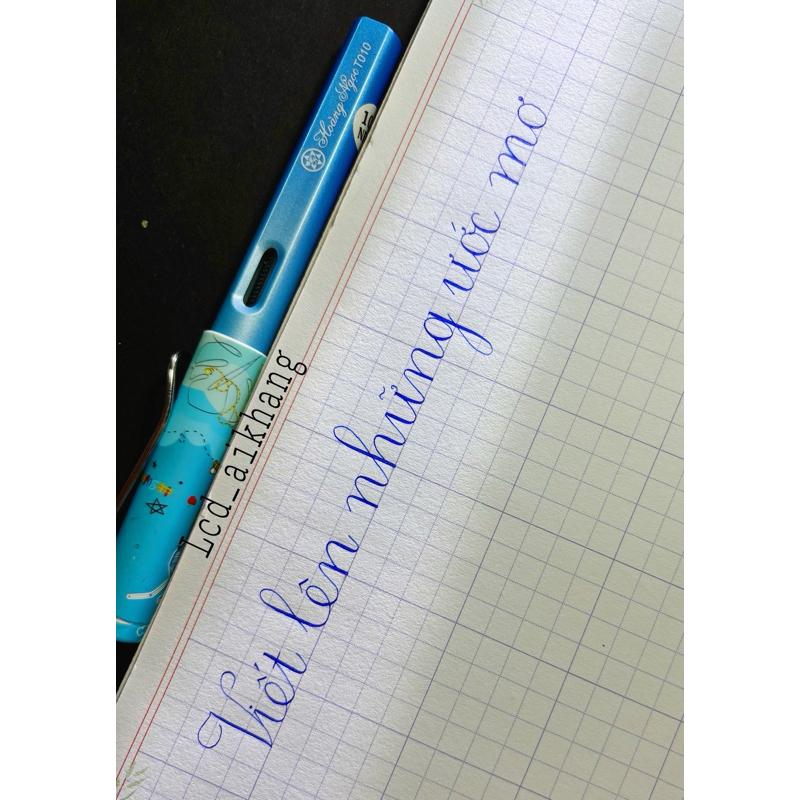 Hoàng Ngọc T010
Lcd_aikhang
Viết lên những ước mơ